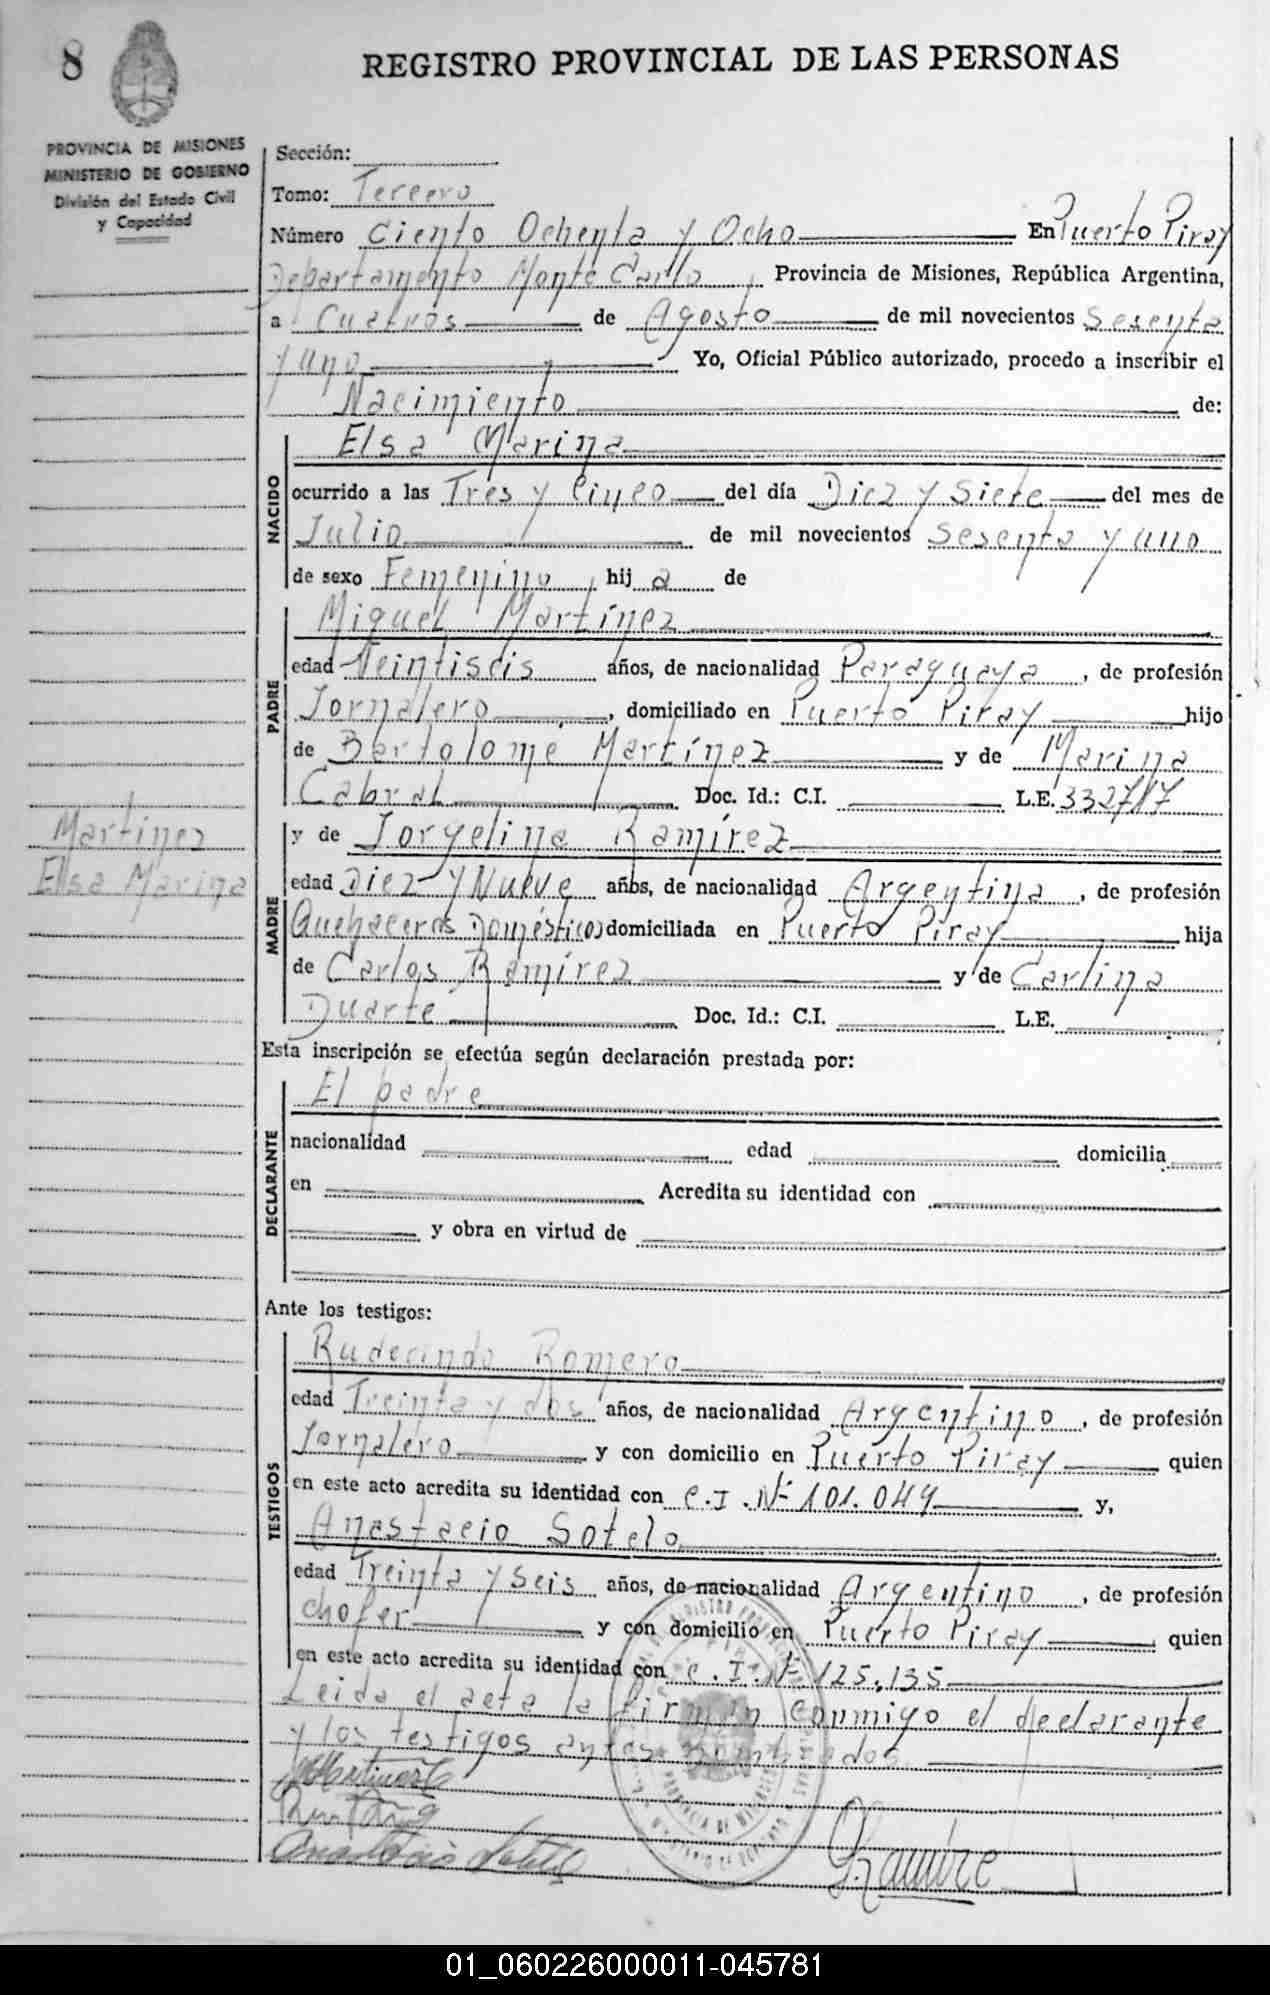 8
REGISTRO PROVINCIAL DE LAS PERSONAS
PROVINCIA DE MISIONES
MINISTERIO DE GOBIERNO
División del Estado Civil
y Capacidad
Sección:
Tomo: Tercero
Número Ciento Ochenta y Ocho En Puerto Piray
Departamento Monte Carlo, Provincia de Misiones, República Argentina,
a Cuatros de Agosto de mil novecientos Sesenta
y uno Yo, Oficial Público autorizado, procedo a inscribir el
Nacimiento de:
NACIDO
Elsa Marina
ocurrido a las Tres y Cinco del día Diez y Siete del mes de
Julio de mil novecientos Sesenta y uno
de sexo Femenino, hij a de
PADRE
Miguel Martínez
edad Veintiseis años, de nacionalidad Paraguaya, de profesión
Jornalero, domiciliado en Puerto Piray hijo
de Bartolomé Martínez y de Marina
Cabral Doc. Id.: C.I. L.E. 332717
Martinez
Elsa Marina
MADRE
y de Jorgelina Ramírez
edad Diez y Nueve años, de nacionalidad Argentina, de profesión
Quehaceros Domésticos domiciliada en Puerto Piray hija
de Carlos Ramírez y de Carlina
Duarte Doc. Id.: C.I. L.E.
Esta inscripción se efectúa según declaración prestada por:
DECLARANTE
El padre
nacionalidad edad domicilia
en Acredita su identidad con
y obra en virtud de
Ante los testigos:
TESTIGOS
Rudecindo Romero
edad Treinta y dos años, de nacionalidad Argentino, de profesión
Jornalero y con domicilio en Puerto Piray quien
en este acto acredita su identidad con C.I. Nº 101.049 y,
Anastacio Sotelo
edad Treinta y Seis años, de nacionalidad Argentino, de profesión
chofer y con domicilio en Puerto Piray quien
en este acto acredita su identidad con C.I. Nº 125.135
Leida el acta la firman conmigo el declarante
y los testigos antes nombrados
Anastacio Sotelo
01_060226000011-045781